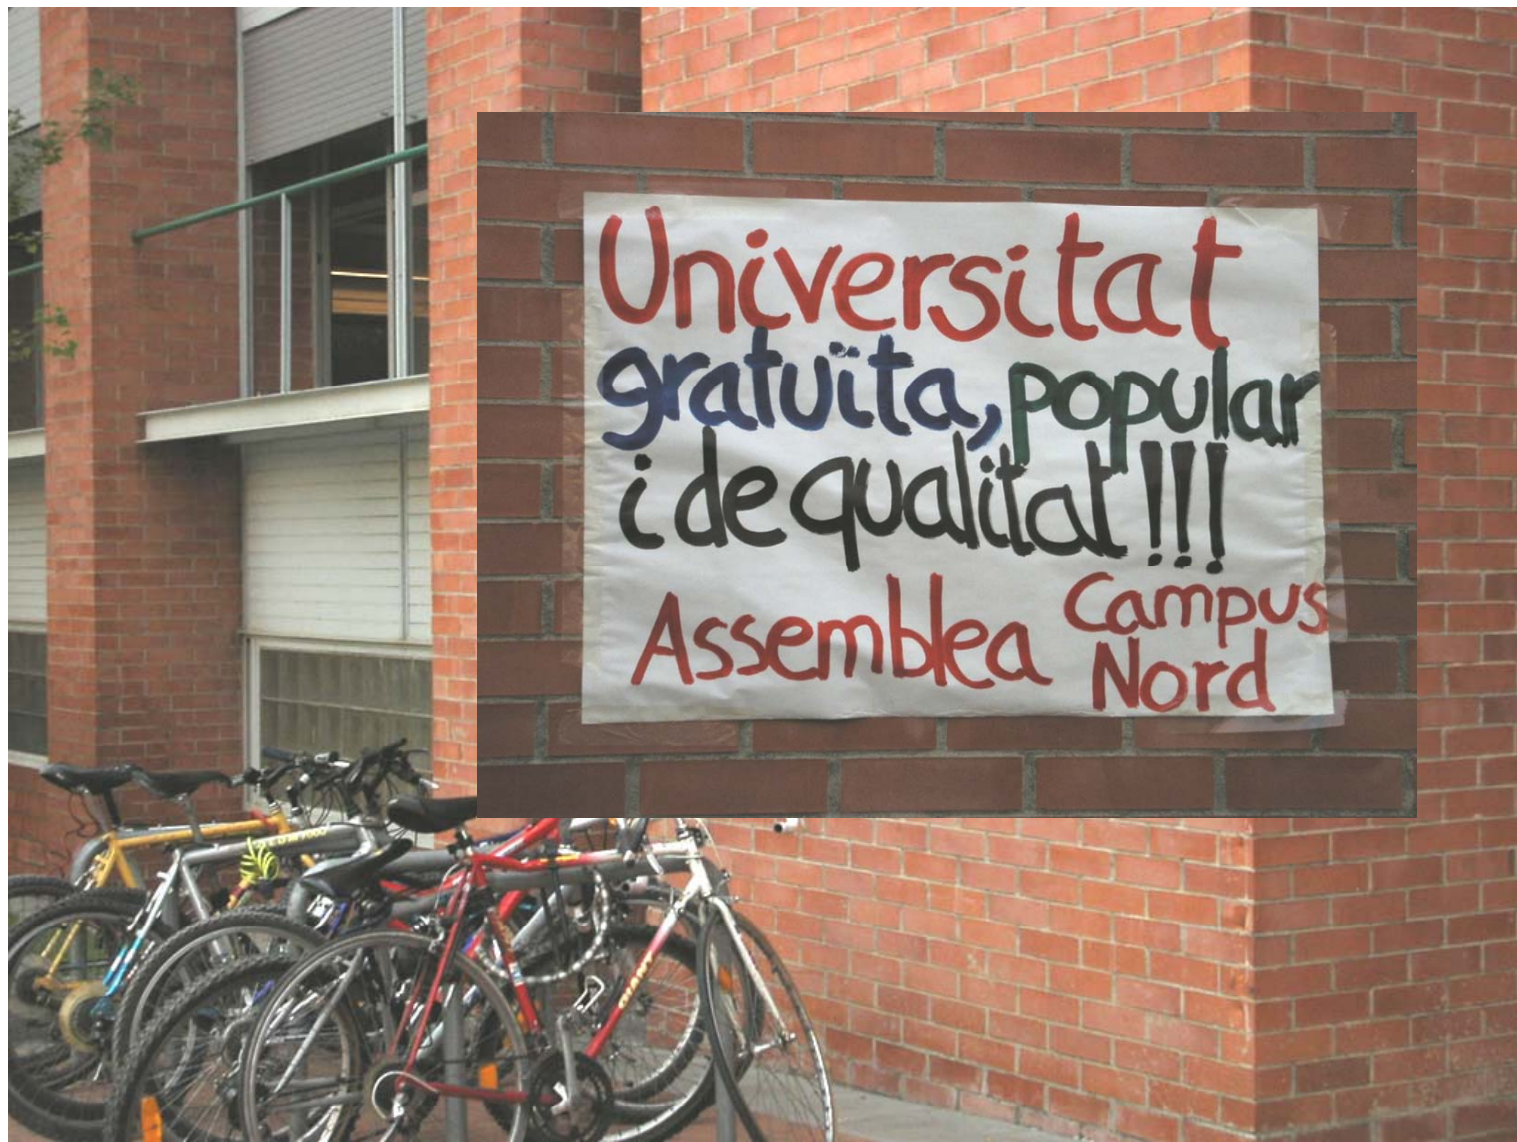 Universitat
gratuïta, popular
i de qualitat!!!
Assemblea Campus
Nord
GIANT